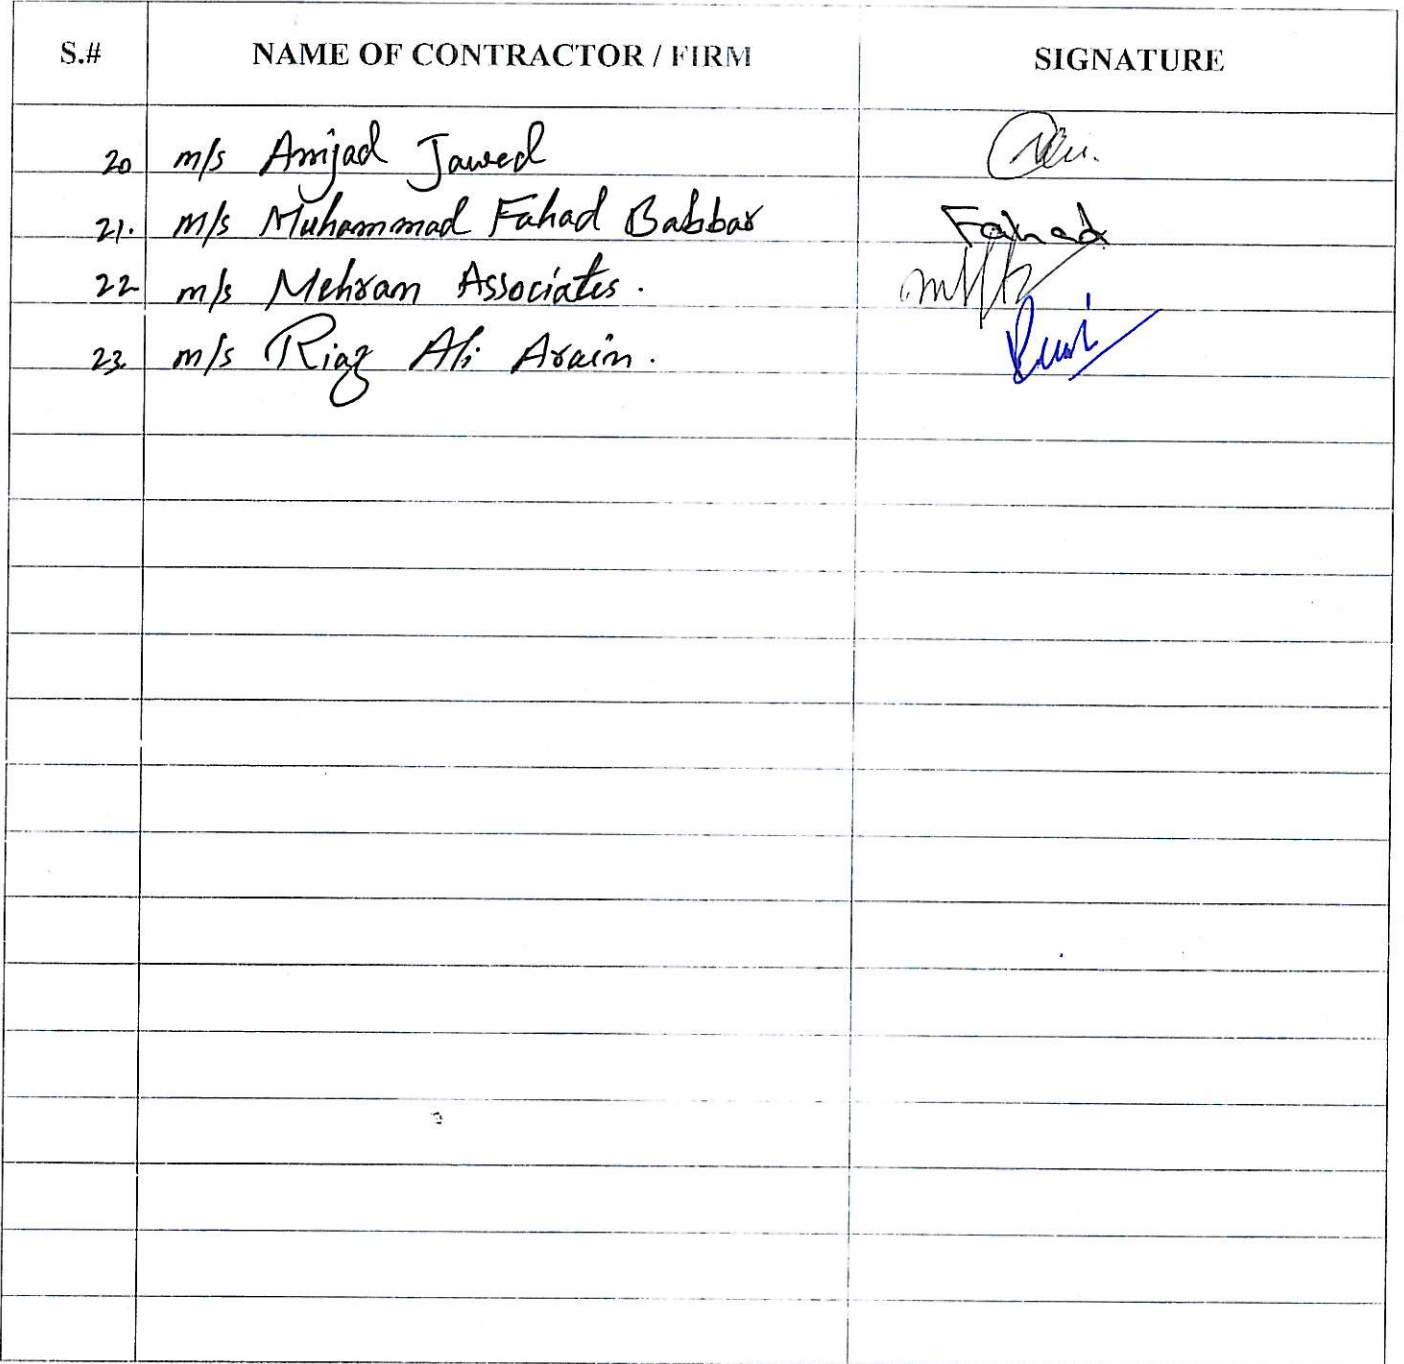 S.# NAME OF CONTRACTOR / FIRM SIGNATURE
20 m/s Amjad Jawed
21. m/s Muhammad Fahad Babbar Fahad
22 m/s Mehran Associates.
23. m/s Riaz Ali Arain.